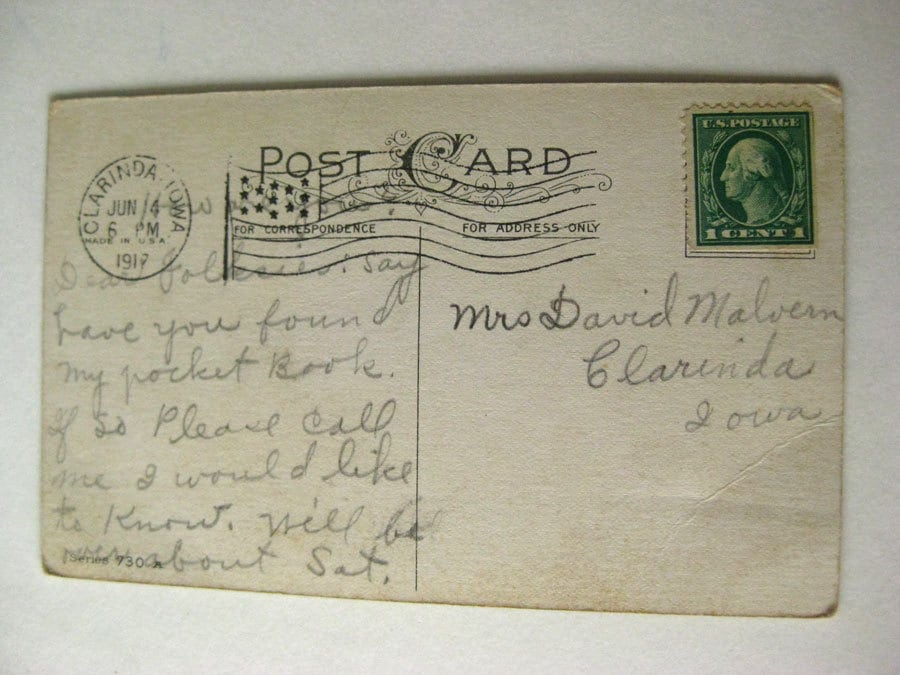 POST CARD
U.S. POSTAGE
1 CENT 1
CLARINDA, IOWA
JUN 4
6 PM
MADE IN U.S.A.
1917
FOR CORRESPONDENCE
FOR ADDRESS ONLY
Dear Folksies: Say
have you found
my pocket Book.
If so Please Call
me I would like
to Know. Will be
about Sat.
Series 730 A
Mrs David Malvern
Clarinda
Iowa